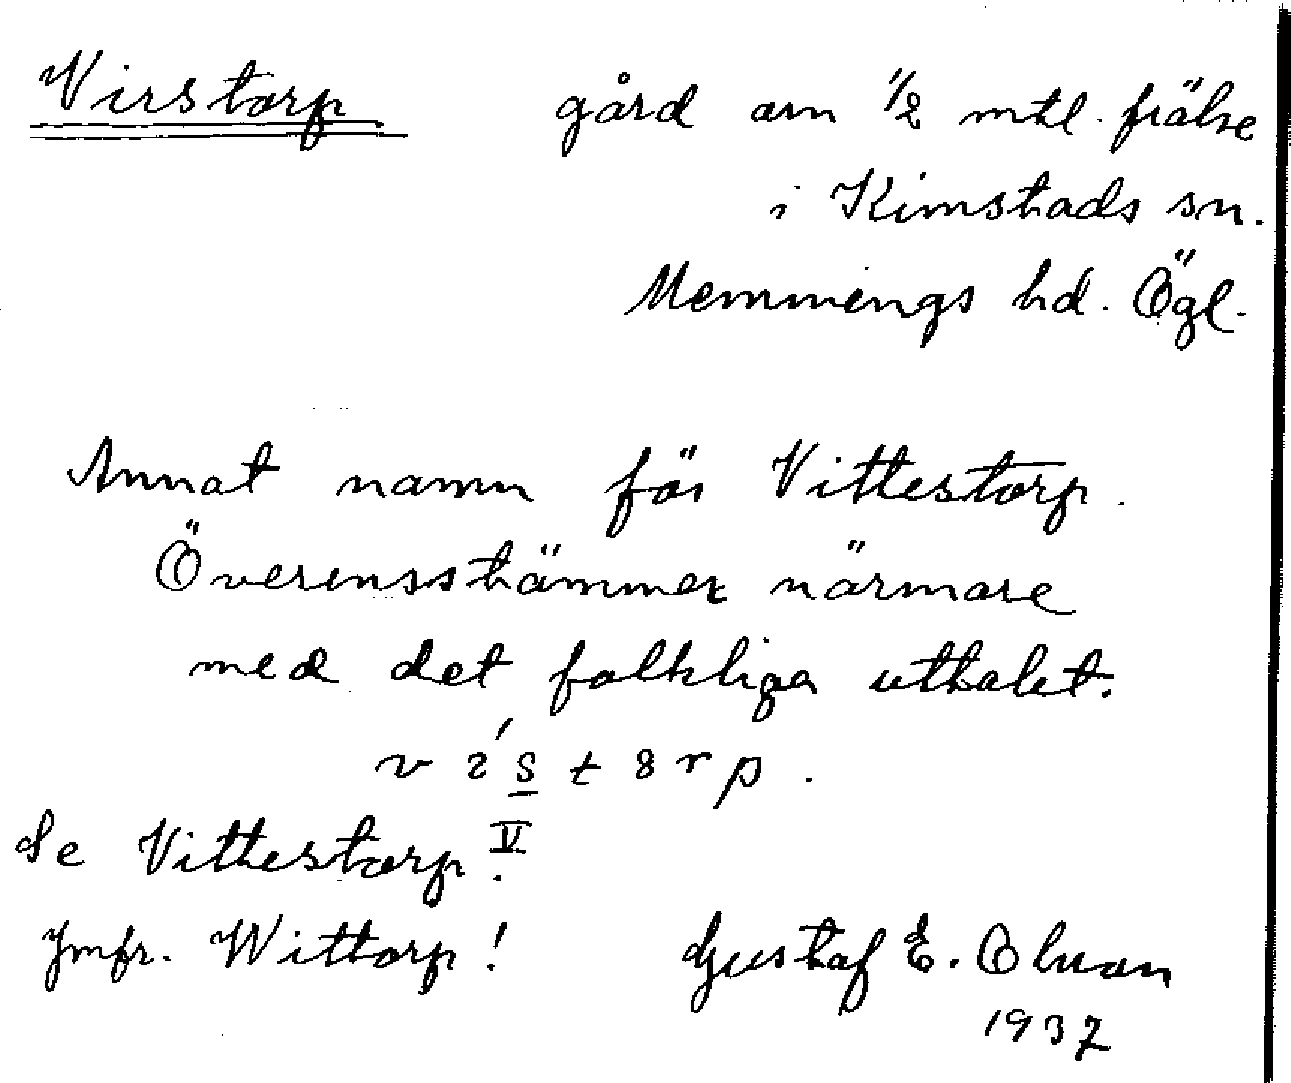 Virstorp gård om 1/2 mtl. frälse
i Kimstads sn.
Memmings hd. Ögl.
Annat namn för Vittestorp.
Överensstämmer närmare
med det folkliga uttalet.
v i´ s t 8 r p .
Se Vittestorp V.
Jmfr. Wittorp! Gustaf E. Olsson
1937